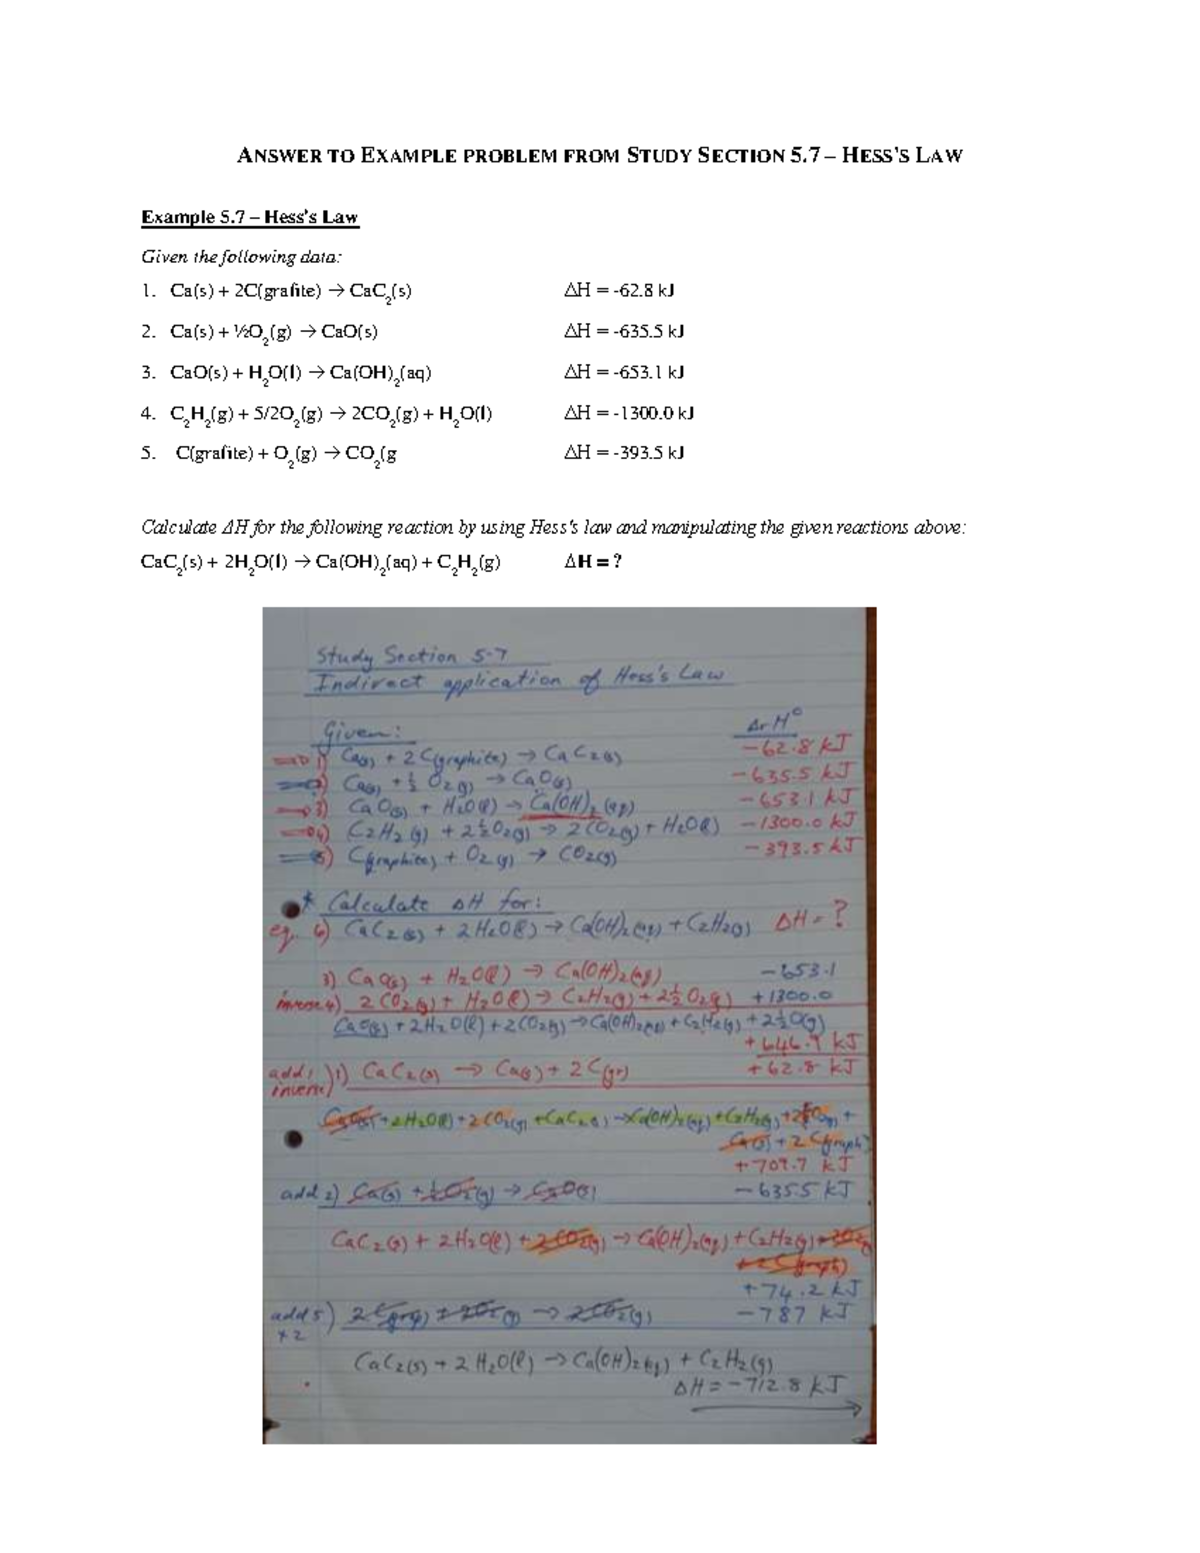 ANSWER TO EXAMPLE PROBLEM FROM STUDY SECTION 5.7 – HESS'S LAW
Example 5.7 – Hess's Law
Given the following data:
1. Ca(s) + 2C(grafite) → CaC₂(s) ΔH = -62.8 kJ
2. Ca(s) + ½O₂(g) → CaO(s) ΔH = -635.5 kJ
3. CaO(s) + H₂O(l) → Ca(OH)₂(aq) ΔH = -653.1 kJ
4. C₂H₂(g) + 5/2O₂(g) → 2CO₂(g) + H₂O(l) ΔH = -1300.0 kJ
5. C(grafite) + O₂(g) → CO₂(g ΔH = -393.5 kJ
Calculate ΔH for the following reaction by using Hess's law and manipulating the given reactions above:
CaC₂(s) + 2H₂O(l) → Ca(OH)₂(aq) + C₂H₂(g) ΔH = ?
Study Section 5-7
Indirect application of Hess's Law
Given: ΔrH°
1) Ca(s) + 2C(graphite) → CaC2(s) -62.8 kJ
2) Ca(s) + ½ O2(g) → CaO(s) -635.5 kJ
3) CaO(s) + H2O(l) → Ca(OH)2(aq) -653.1 kJ
4) C2H2(g) + 2½O2(g) → 2CO2(g) + H2O(l) -1300.0 kJ
5) C(graphite) + O2(g) → CO2(g) -393.5 kJ
* Calculate ΔH for:
eq. 6) CaC2(s) + 2H2O(l) → Ca(OH)2(aq) + C2H2(g) ΔH = ?
3) CaO(s) + H2O(l) → Ca(OH)2(aq) -653.1
inverse 4) 2CO2(g) + H2O(l) → C2H2(g) + 2½O2(g) +1300.0
CaO(s) + 2H2O(l) + 2CO2(g) → Ca(OH)2(aq) + C2H2(g) + 2½O(g)
+646.9 kJ
add, inverse) 1) CaC2(s) → Ca(s) + 2C(gr) +62.8 kJ
CaO(s) + 2H2O(l) + 2CO2(g) + CaC2(s) → Ca(OH)2(aq) + C2H2(g) + 2½O2(g) +
Ca(s) + 2C(graph)
+709.7 kJ
add 2) Ca(s) + ½O2(g) → CaO(s) -635.5 kJ
CaC2(s) + 2H2O(l) + 2CO2(g) → Ca(OH)2(aq) + C2H2(g) + 2O2(g)
+ 2C(graph)
+74.2 kJ
add 5) 2C(gra) + 2O2(g) → 2CO2(g) -787 kJ
×2
CaC2(s) + 2H2O(l) → Ca(OH)2(aq) + C2H2(g)
ΔH = -712.8 kJ